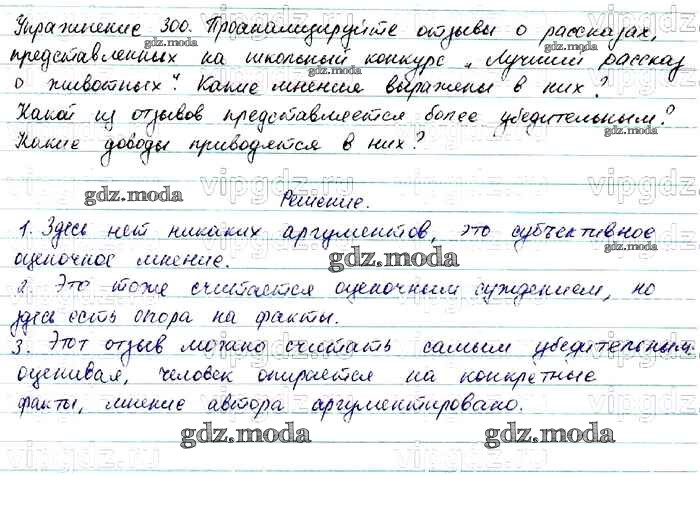 Упражнение 300. Проанализируйте отзывы о рассказах,
представленных на школьный конкурс „Лучший рассказ
о животных". Какие мнения выражены в них?
Какой из отзывов представляется более убедительным?
Какие доводы приводятся в них?
Решение.
1. Здесь нет никаких аргументов, это субъективное
оценочное мнение.
2. Это тоже считается оценочным суждением, но
здесь есть опора на факты.
3. Этот отзыв можно считать самым убедительным.
оценивая, человек опирается на конкретные
факты, мнение автора аргументировано.
gdz.moda
gdz.moda
gdz.moda
gdz.moda
gdz.moda
gdz.moda
gdz.moda
gdz.moda
gdz.moda
gdz.moda
vipgdz.ru
vipgdz.ru
vipgdz.ru